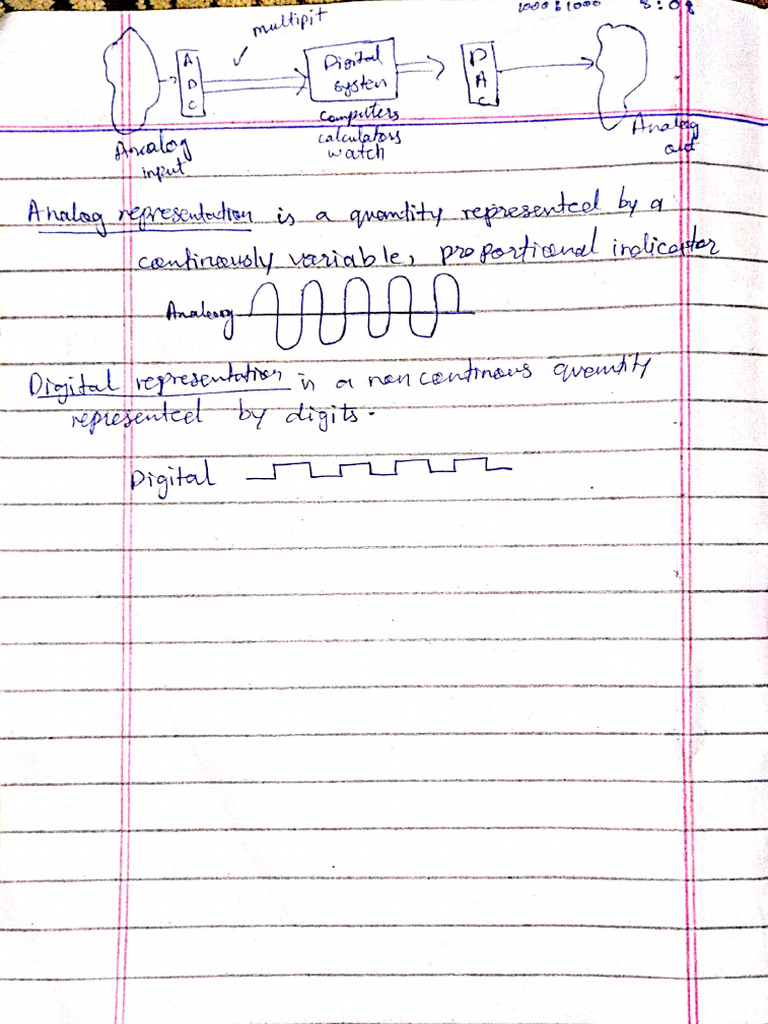 1000:1000 8:08
multipit
A
D
C
Digital
system
D
A
C
computers
calculators
watch
Analog
input
Analog
out
Analog representation is a quantity represented by a
continuously variable, proportional indicator
Analog
Digital representation is a non continous quantity
represented by digits.
Digital